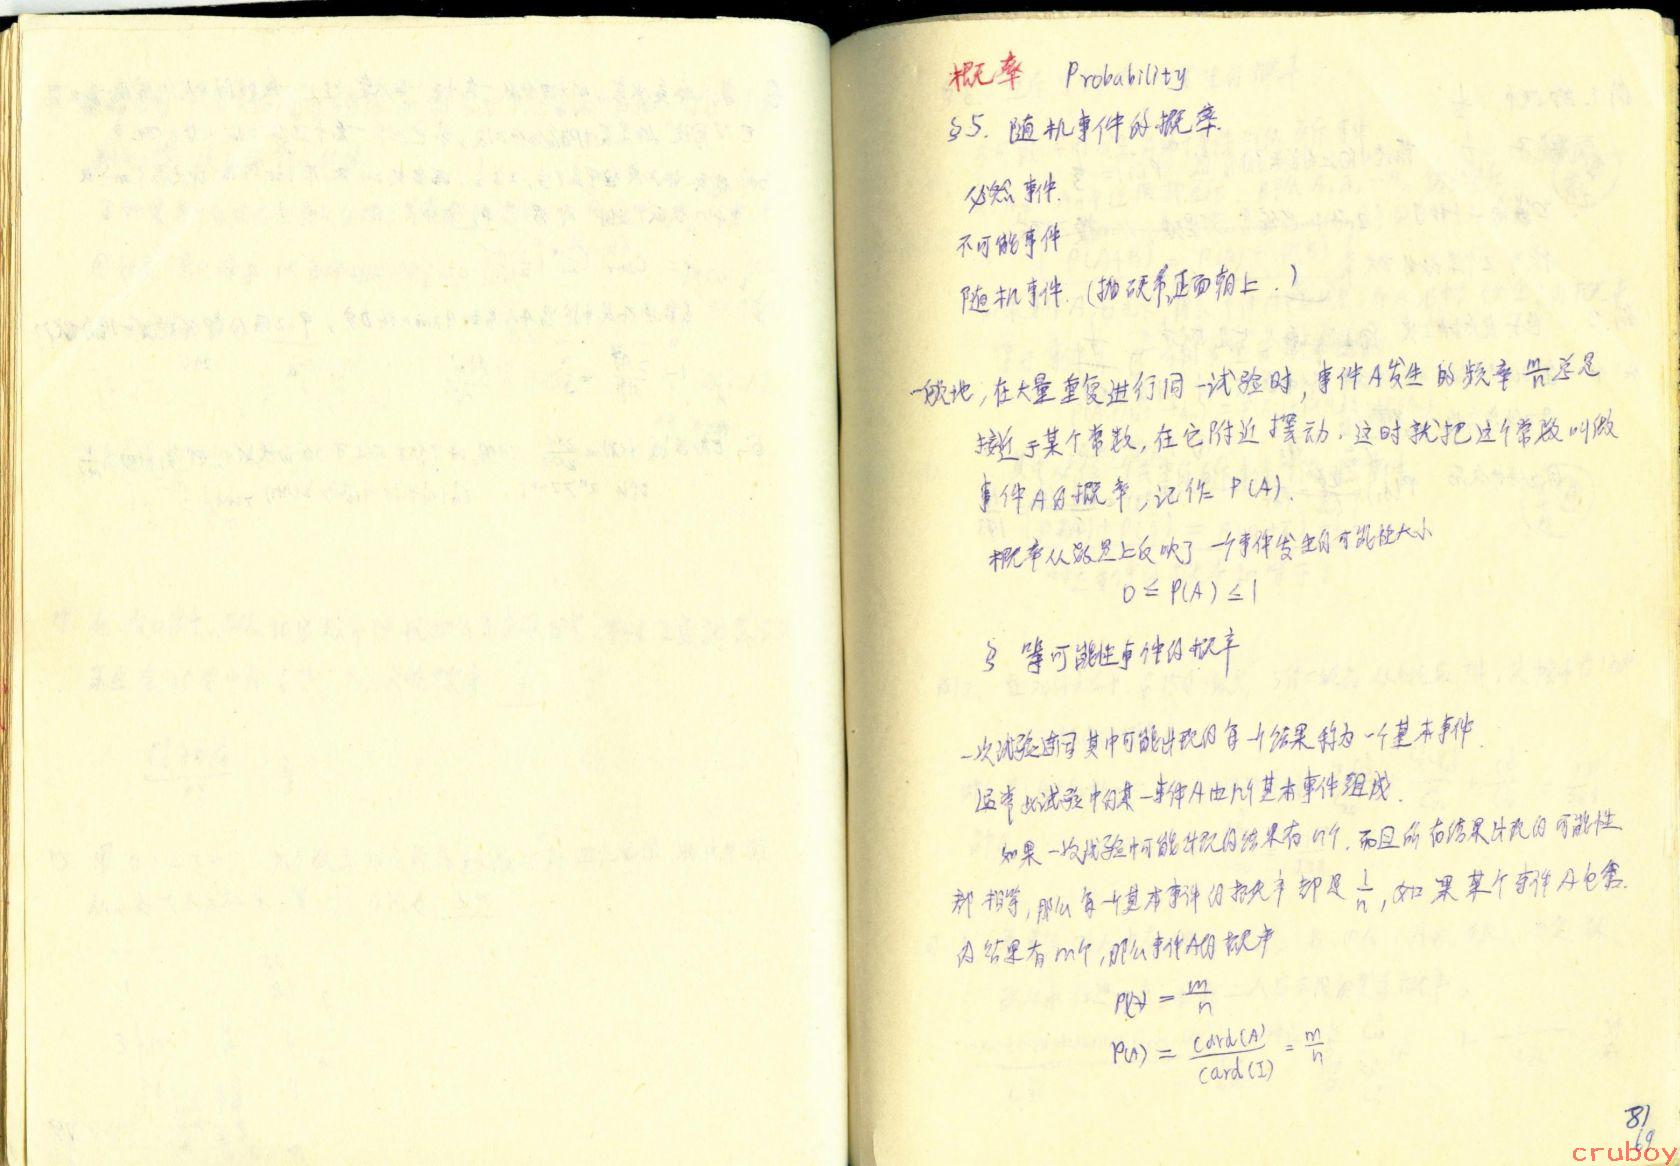 概率 Probability
§5. 随机事件的概率.
必然事件.
不可能事件
随机事件. (抛硬币,正面朝上.)
一般地, 在大量重复进行同一试验时, 事件A发生的频率 m/n 总是
接近于某个常数, 在它附近摆动. 这时就把这个常数叫做
事件A的概率, 记作 P(A).
概率从数量上反映了一个事件发生的可能性大小
0 ≤ P(A) ≤ 1
§ 等可能性事件的概率
一次试验连同其中可能出现的每一个结果称为一个基本事件.
通常此试验中的某一事件A由几个基本事件组成.
如果一次试验中可能出现的结果有n个. 而且所有结果出现的可能性
都相等, 那么每一个基本事件的概率都是 1/n, 如果某个事件A包含.
的结果有m个, 那么事件A的概率
P(A) = m/n
P(A) = Card(A)/Card(I) = m/n
81
69
cruboy